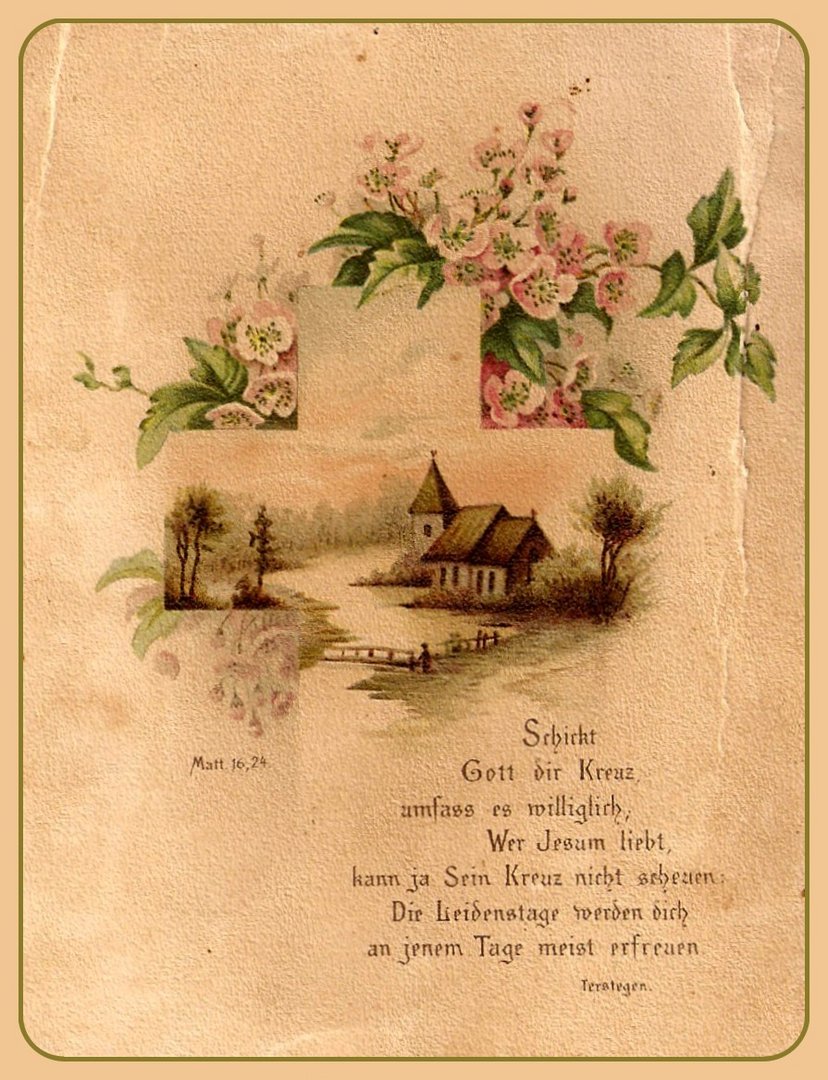 Matt. 16,24.
Schickt
Gott dir Kreuz,
umfass es williglich;
Wer Jesum liebt,
kann ja Sein Kreuz nicht scheuen:
Die Leidenstage werden dich
an jenem Tage meist erfreuen.
Terstegen.